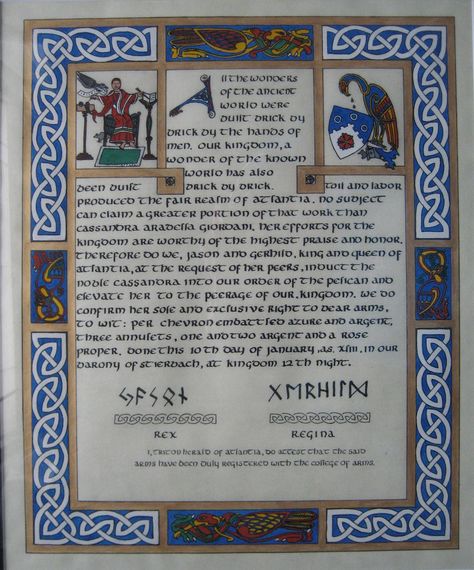 All the wonders
of the ancient
world were
built brick by
brick by the hands of
men. Our kingdom, a
wonder of the known
world has also
been built brick by brick. Toil and labor
produced the fair realm of Atlantia. No subject
can claim a greater portion of that work than
Cassandra Arabella Giordani. Her efforts for the
kingdom are worthy of the highest praise and honor.
Therefore do we, Jason and Gerhild, King and Queen of
Atlantia, at the request of her peers, induct the
noble Cassandra into our Order of the Pelican and
elevate her to the peerage of our kingdom. We do
confirm her sole and exclusive right to bear arms,
to wit: Per chevron embattled azure and argent,
three annulets, one and two argent and a rose
proper. Done this 10th day of January, A.S. XLIII, in our
barony of Stierbach, at Kingdom 12th Night.
ᛃᚨᛊᛟᚾ ᚷᛖᚱ�Һᛁᛚᛞ
Rex Regina
I, Triton Herald of Atlantia, do attest that the said
arms have been duly registered with the College of Arms.